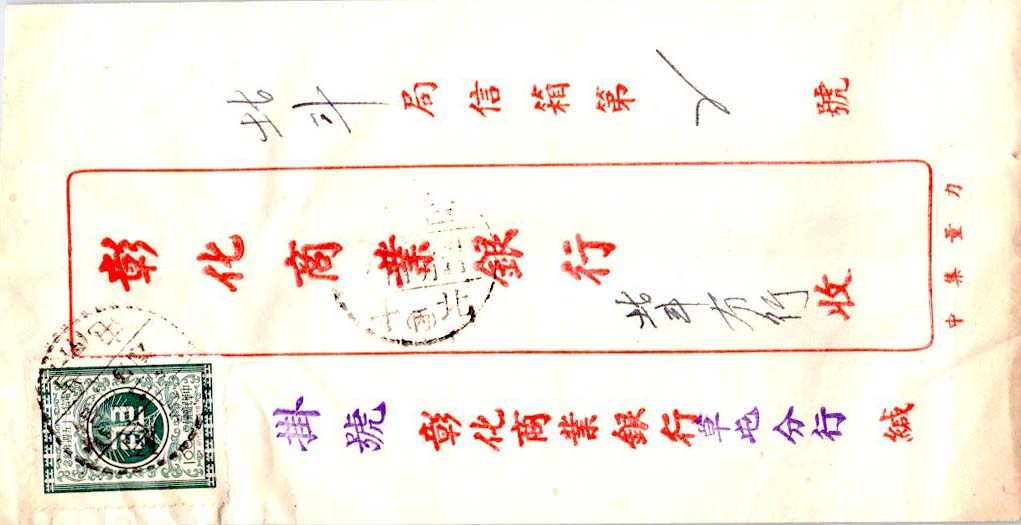 北斗局信箱第 號
彰化商業銀行 北斗分行 收
掛號 彰化商業銀行草屯分行 緘
力量集中